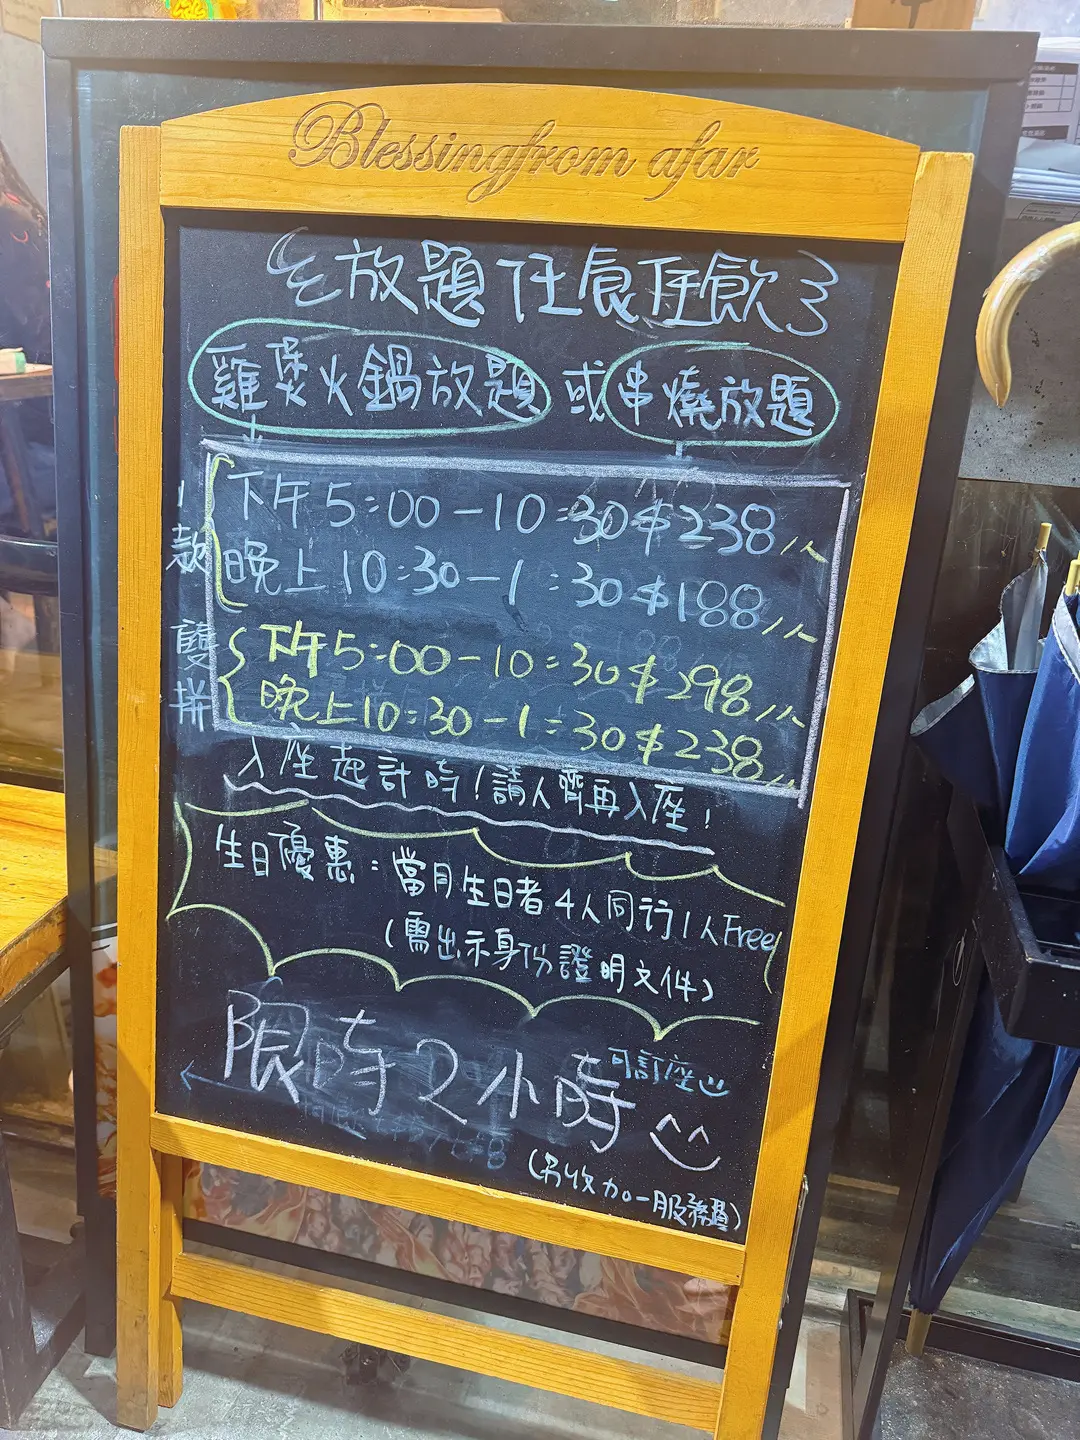 Blessingfrom afar
放題任食任飲
雞煲火鍋放題 或 串燒放題
1款
下午5:00-10:30 $238/人
晚上10:30-1:30 $188/人
雙拼
下午5:00-10:30 $298/人
晚上10:30-1:30 $238/人
入座起計時!請人齊再入座!
生日優惠:當月生日者4人同行1人Free
(需出示身份證明文件)
限時2小時
可訂座
(另收加一服務費)